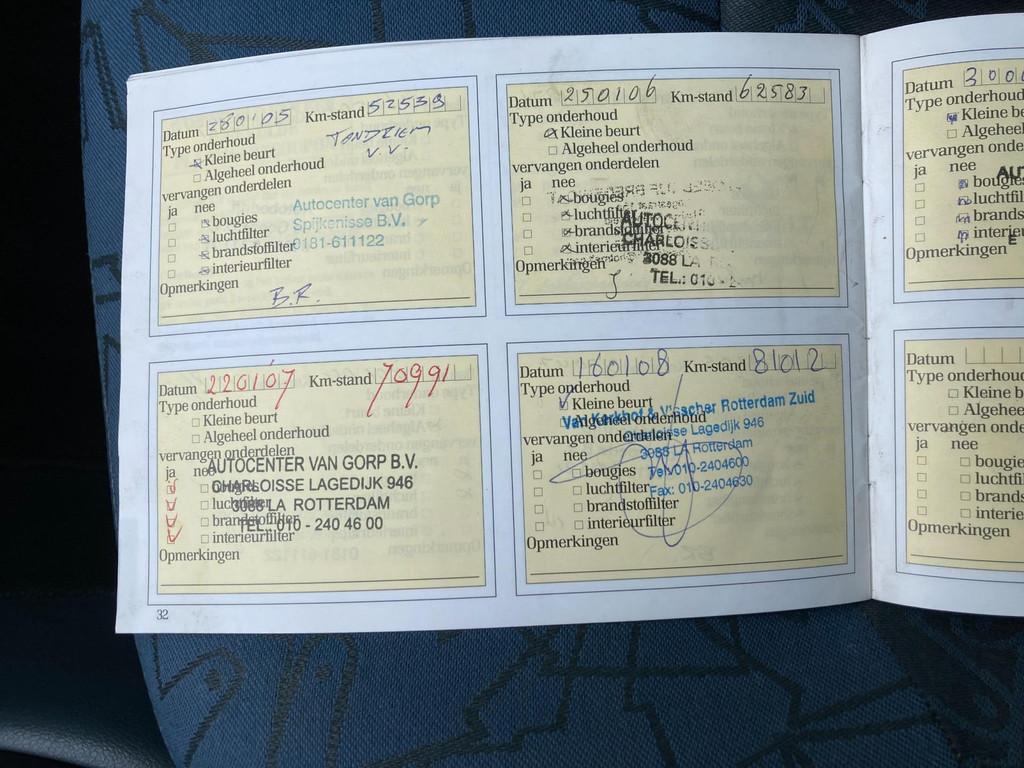 Datum 280105 Km-stand 52539
Type onderhoud
Kleine beurt
Algeheel onderhoud
vervangen onderdelen
ja nee
bougies
luchtfilter
brandstoffilter
interieurfilter
Opmerkingen
Autocenter van Gorp
Spijkenisse B.V.
0181-611122
B.R.
Datum 250106 Km-stand 62583
Type onderhoud
Kleine beurt
Algeheel onderhoud
vervangen onderdelen
ja nee
bougies
luchtfilter
brandstoffilter
interieurfilter
Opmerkingen
AUTOCEN
CHARLOISS
3088 LA
TEL.: 010 - 2
Datum 220107 Km-stand 70991
Type onderhoud
Kleine beurt
Algeheel onderhoud
vervangen onderdelen
ja nee
bougies
luchtfilter
brandstoffilter
interieurfilter
Opmerkingen
AUTOCENTER VAN GORP B.V.
CHARLOISSE LAGEDIJK 946
3088 LA ROTTERDAM
TEL.: 010 - 240 46 00
Datum 160108 Km-stand 81012
Type onderhoud
Kleine beurt
Algeheel onderhoud
vervangen onderdelen
ja nee
bougies
luchtfilter
brandstoffilter
interieurfilter
Opmerkingen
Van Kerkhof & Visscher Rotterdam Zuid
Charloisse Lagedijk 946
3088 LA Rotterdam
Tel: 010-2404600
Fax: 010-2404630
32
Datum 300
Type onderhoud
Kleine be
Algeheel
vervangen onde
ja nee
bougie
luchtfi
brands
interie
Opmerkingen
AUT
Datum
Type onderhoud
Kleine b
Algehee
vervangen onde
ja nee
bougie
luchtfi
brands
interie
Opmerkingen